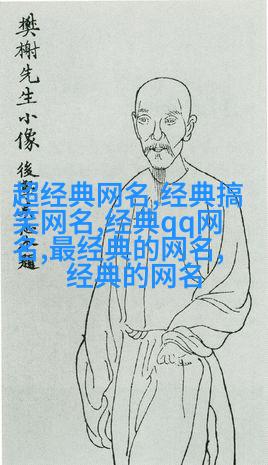 樊榭先生小像
超经典网名,经典搞
笑网名,经典qq网
名,最经典的网名,
经典的网名